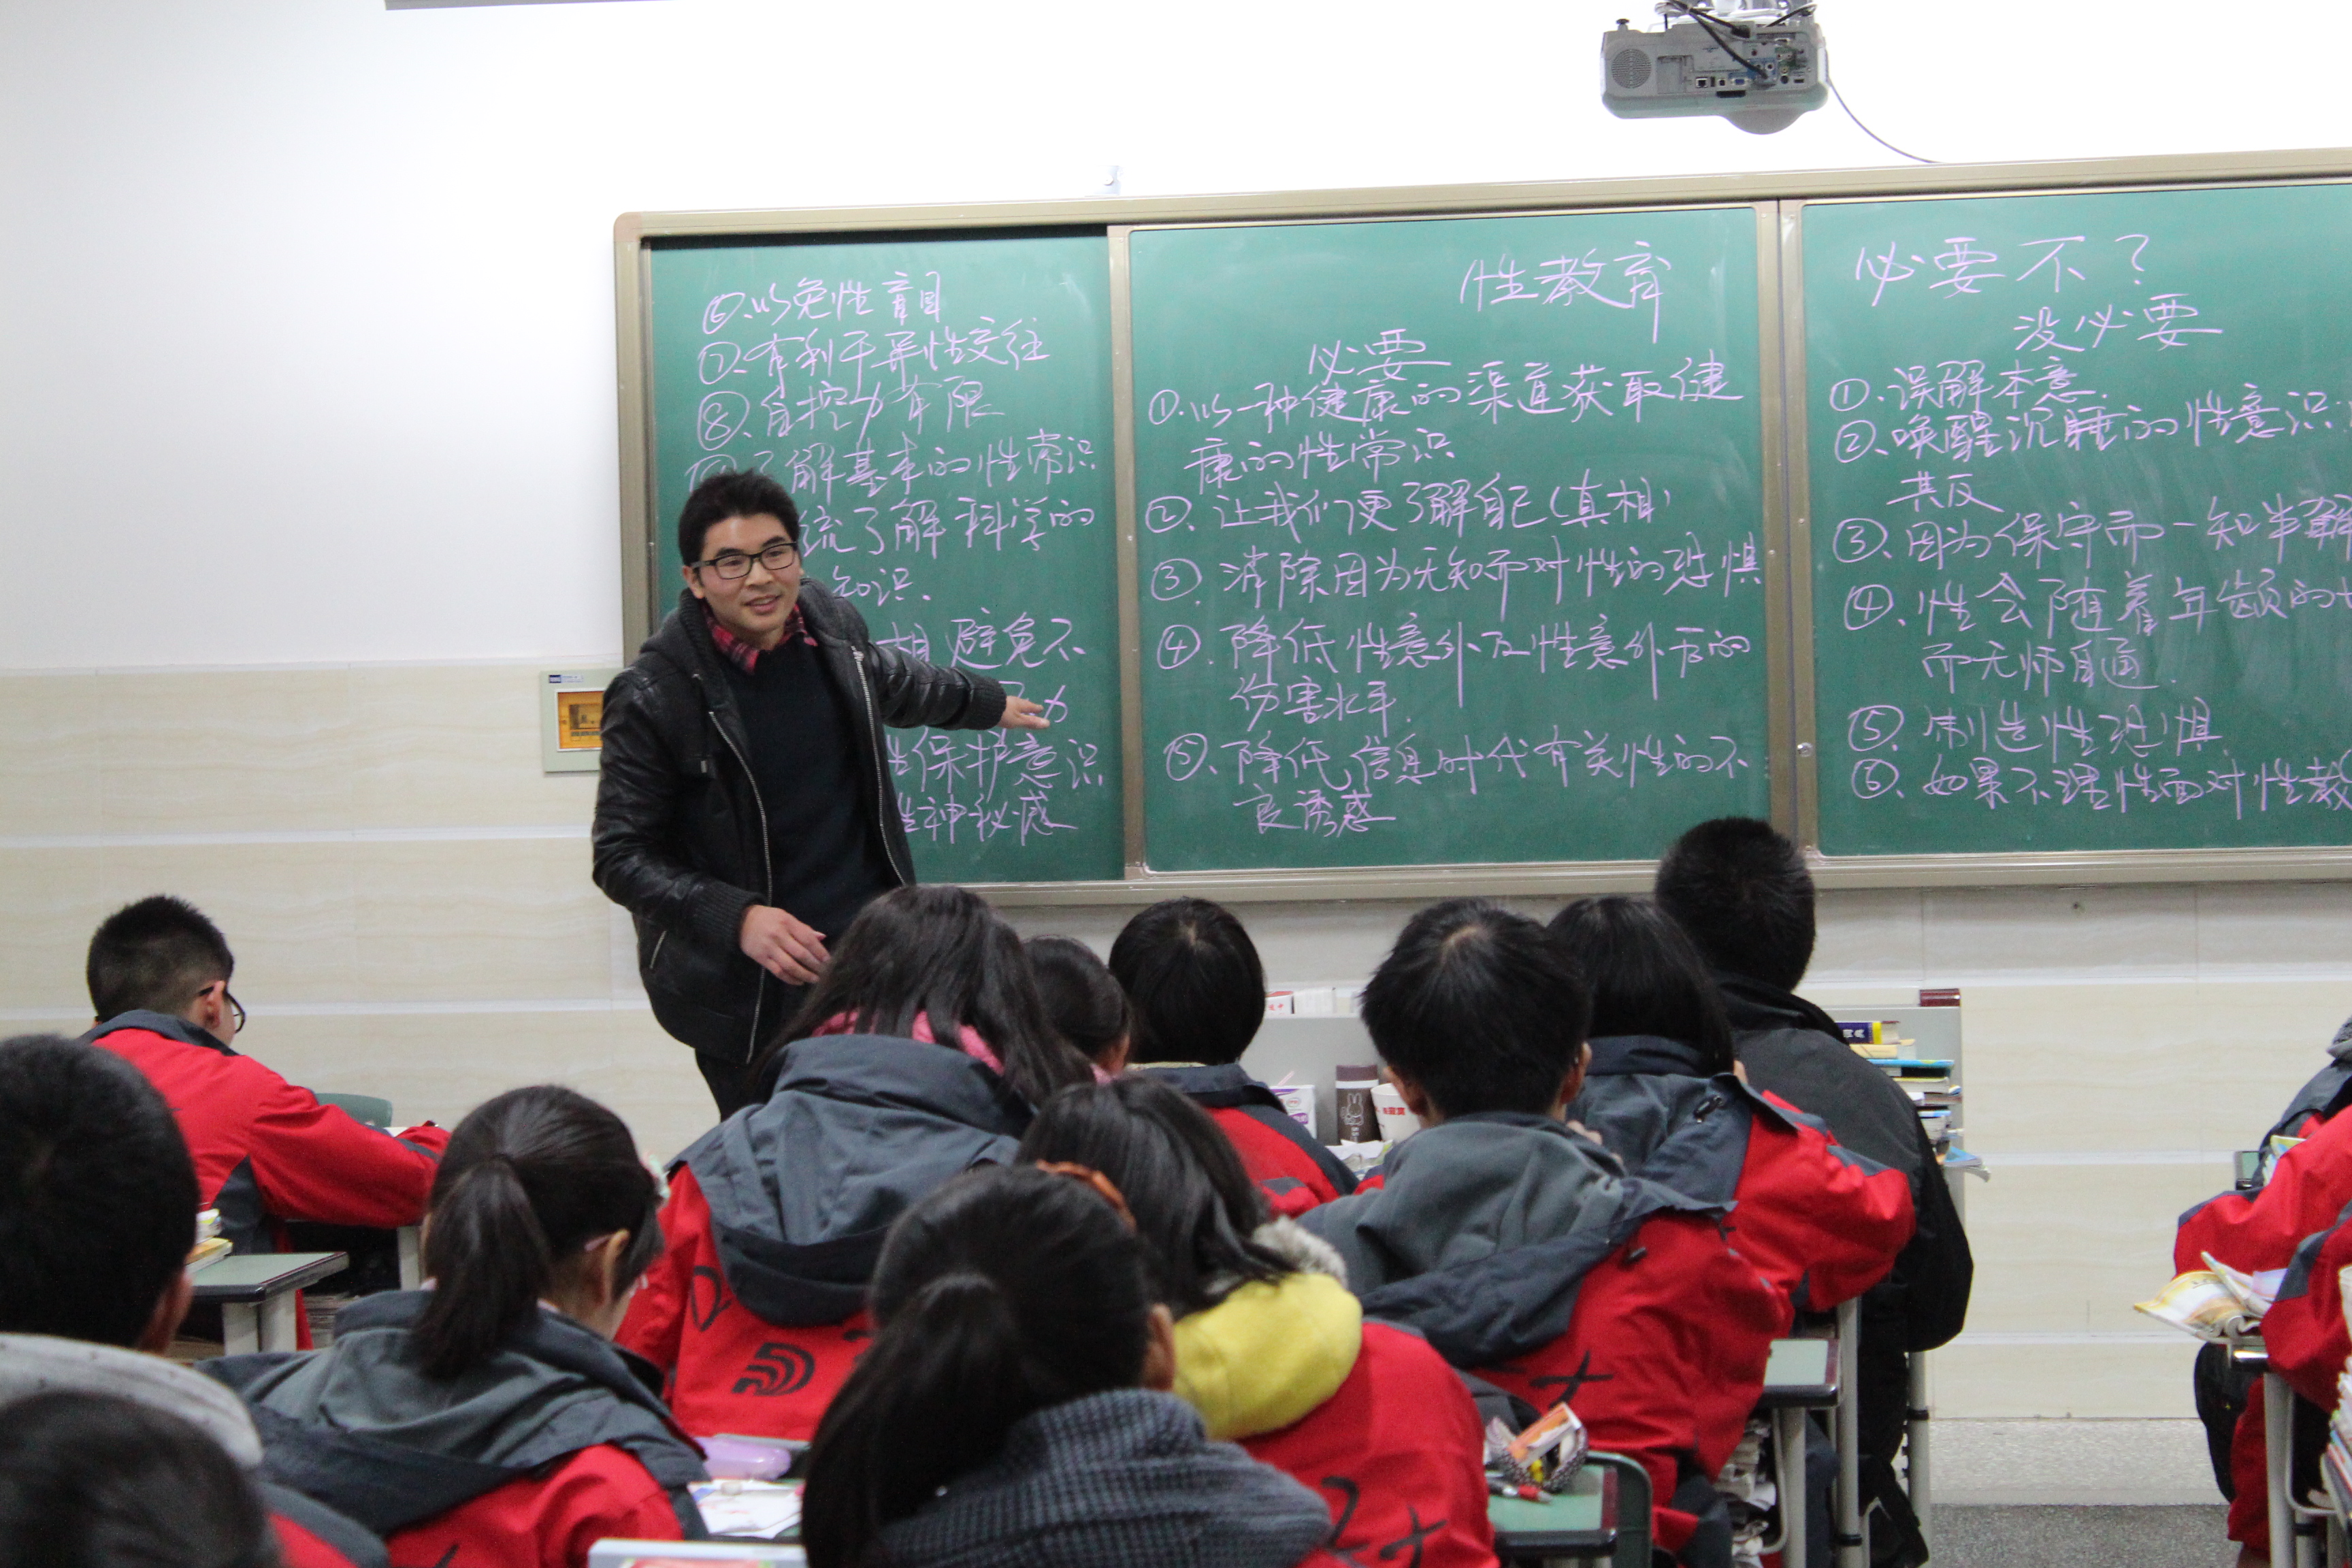 性教育
必要不？
必要
①.以一种健康的渠道获取健
康的性常识
②、让我们更了解自己(真相)
③、消除因为无知而对性的恐惧
④、降低性意外及性意外后的
伤害水平.
⑤、降低信息时代有关性的不
良诱惑
⑥、以免性盲目
⑦、有利于异性交往
⑧、自控力有限
了解基本的性常识
统了解科学的
知识.
相避免不
力
性保护意识
性神秘感
没必要
①、误解本意.
②、唤醒沉睡的性意识
其反
③、因为保守而一知半解
④、性会随着年龄的
而无师自通.
⑤、制造性恐惧
⑥、如果不理性面对性教